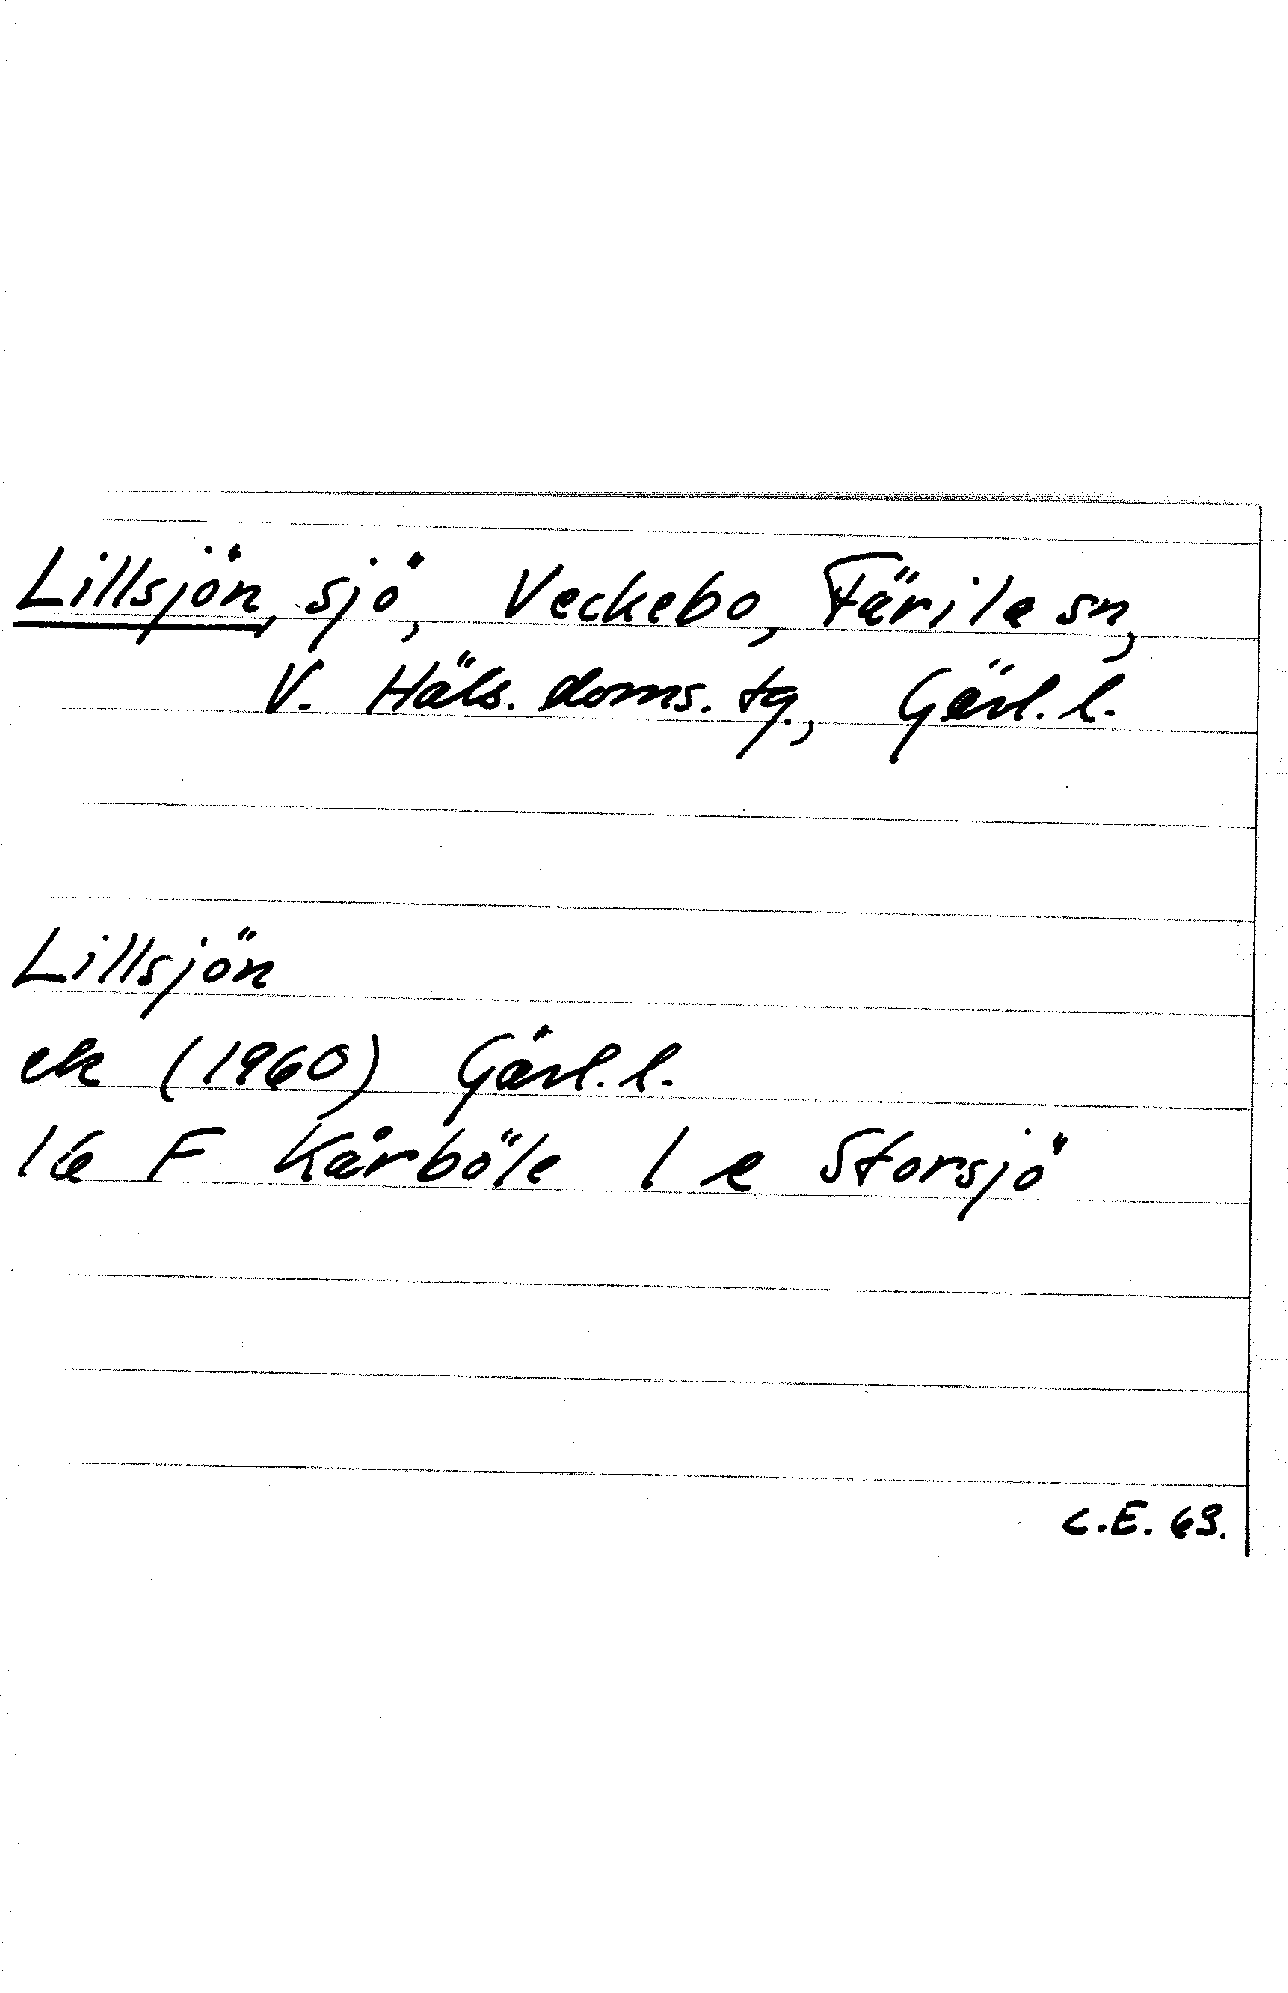 Lillsjön, sjö, Veckebo, Färila sn,
V. Häls. doms. tg., Gävl. l.
Lillsjön
ek (1960) Gävl. l.
16 F Kårböle 1 e Storsjö
C.E. 63.